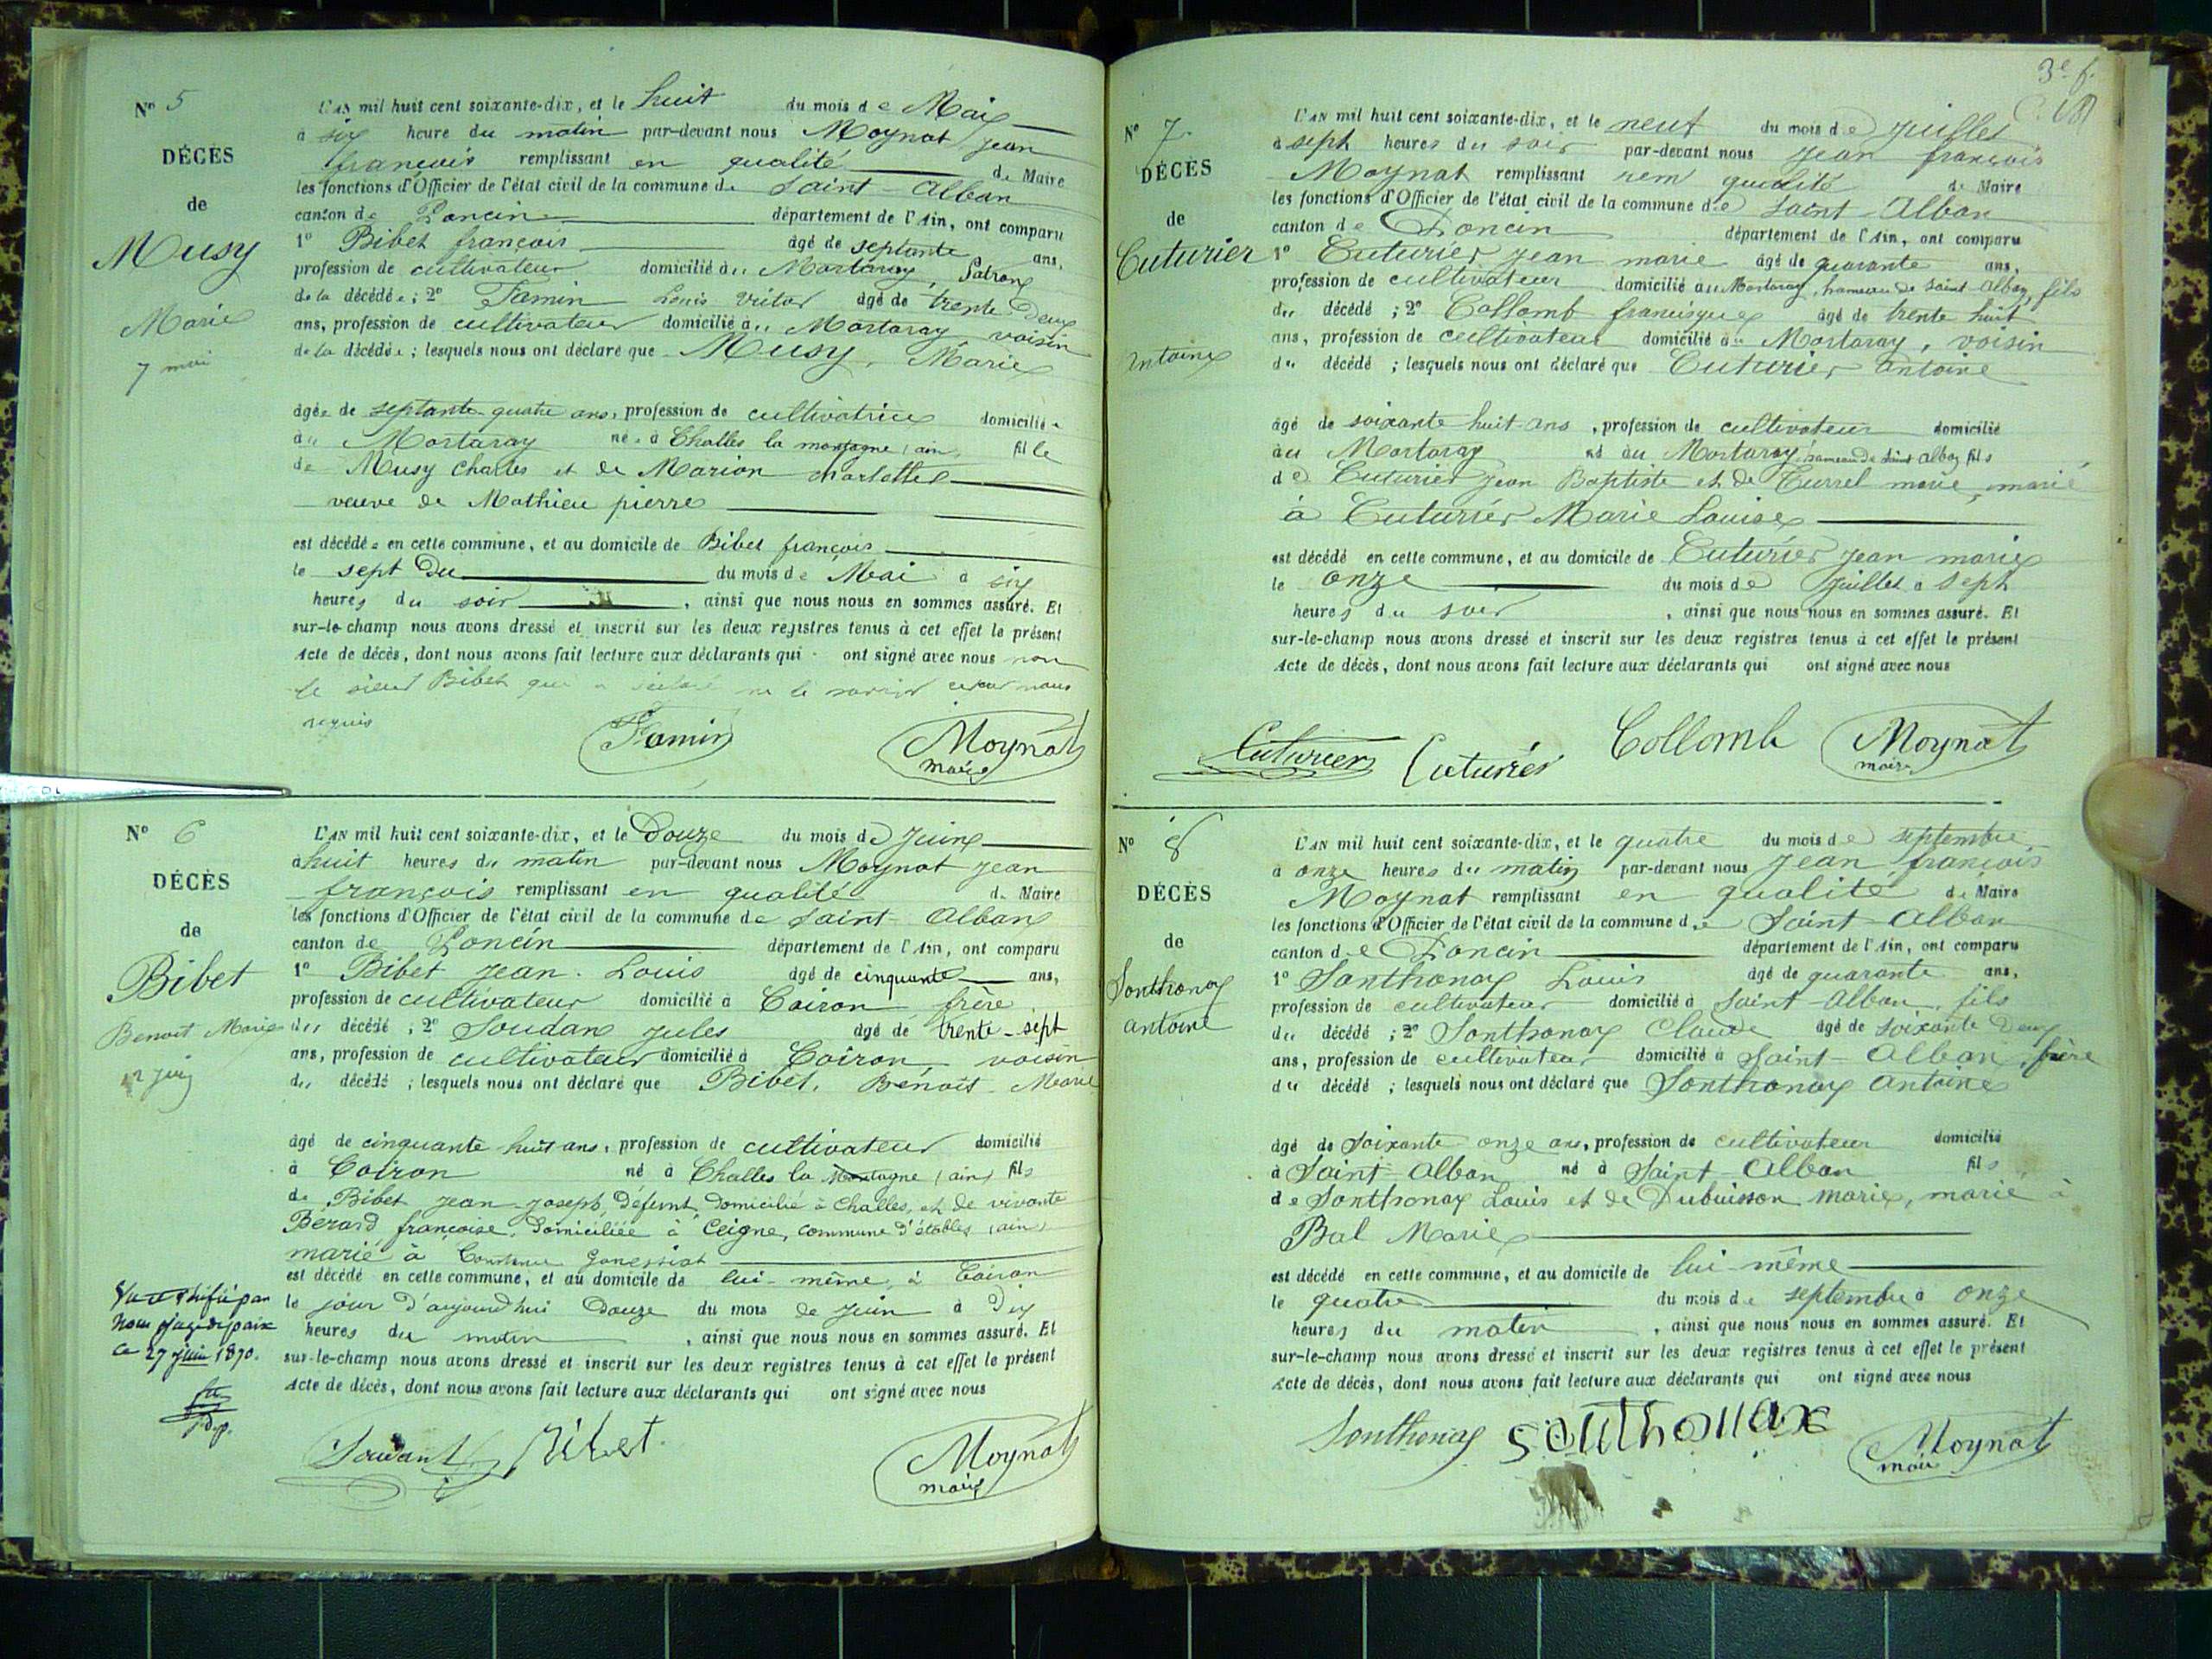 N° 5
DÉCÈS
de
Musy
Marie
7 mai
L'AN mil huit cent soixante-dix, et le huit du mois de Mai
à six heure du matin par-devant nous Moynat jean
françois remplissant en qualité de Maire
les fonctions d'Officier de l'état civil de la commune de Saint-Alban
canton de Poncin département de l'Ain, ont comparu
1° Bibet françois âgé de septante ans,
profession de cultivateur domicilié au Mortaray, Patron
de la décédée ; 2° Famin Louis Victor âgé de trente Deux
ans, profession de cultivateur domicilié au Mortaray voisin
de la décédée ; lesquels nous ont déclaré que Musy, Marie
âgée de septante-quatre ans, profession de cultivatrice domiciliée
au Mortaray née à Challes la montagne (ain) fille
de Musy Charles et de Marion charlotte
veuve de Mathieu pierre
est décédée en cette commune, et au domicile de Bibet françois
le sept du du mois de Mai à six
heures du soir, ainsi que nous nous en sommes assuré. Et
sur-le-champ nous avons dressé et inscrit sur les deux registres tenus à cet effet le présent
Acte de décès, dont nous avons fait lecture aux déclarants qui ont signé avec nous non
le sieur Bibet qui a déclaré ne le savoir nous
requis
Famin Moynat
maire
N° 6
DÉCÈS
de
Bibet
Benoit Marie
12 juin
L'AN mil huit cent soixante-dix, et le Douze du mois de Juin
à huit heures du matin par-devant nous Moynat jean
françois remplissant en qualité de Maire
les fonctions d'Officier de l'état civil de la commune de Saint-Alban
canton de Poncin département de l'Ain, ont comparu
1° Bibet jean-Louis âgé de cinquante ans,
profession de cultivateur domicilié à Coiron frère
du décédé ; 2° Soudan jules âgé de trente-sept
ans, profession de cultivateur domicilié à Coiron voisin
du décédé ; lesquels nous ont déclaré que Bibet, Benoit-Marie
âgé de cinquante huit ans, profession de cultivateur domicilié
à Coiron né à Challes la Montagne (ain) fils
de Bibet jean-joseph, Défunt, Domicilié à Challes, et de vivante
Bérard françoise, Domiciliée à Ceigne, commune d'étables (ain)
marié à Constance
est décédé en cette commune, et au domicile de lui-même, à Coiron
le jour d'aujourd'hui Douze du mois de juin à Dix
heures du matin, ainsi que nous nous en sommes assuré. Et
sur-le-champ nous avons dressé et inscrit sur les deux registres tenus à cet effet le présent
Acte de décès, dont nous avons fait lecture aux déclarants qui ont signé avec nous
Vu et vérifié par
nous juge de paix
ce 27 juin 1870.
Bibet Moynat
maire
3e f.
N° 7.
DÉCÈS
de
Cuturier
Antoine
L'AN mil huit cent soixante-dix, et le neuf du mois de juillet
à sept heures du soir par-devant nous jean françois
Moynat remplissant nem qualité de Maire
les fonctions d'Officier de l'état civil de la commune de Saint-Alban
canton de Poncin département de l'Ain, ont comparu
1° Cuturier jean marie âgé de quarante ans,
profession de cultivateur domicilié au Mortaray, hameau de Saint-Alban, fils
du décédé ; 2° Collomb francisque âgé de trente huit
ans, profession de cultivateur domicilié au Mortaray, voisin
du décédé ; lesquels nous ont déclaré que Cuturier antoine
âgé de soixante huit ans, profession de cultivateur domicilié
au Mortaray né au Mortaray, hameau de Saint Alban fils
de Cuturier jean Baptiste et de Turrel marie, marié
à Cuturier Marie Louise
est décédé en cette commune, et au domicile de Cuturier jean marie
le onze du mois de Juillet à sept
heures du soir, ainsi que nous nous en sommes assuré. Et
sur-le-champ nous avons dressé et inscrit sur les deux registres tenus à cet effet le présent
Acte de décès, dont nous avons fait lecture aux déclarants qui ont signé avec nous
Cuturier Cuturier Collomb Moynat
maire
N° 8
DÉCÈS
de
Sonthonax
antoine
L'AN mil huit cent soixante-dix, et le quatre du mois de septembre
à onze heures du matin par-devant nous jean françois
Moynat remplissant en qualité de Maire
les fonctions d'Officier de l'état civil de la commune de Saint-Alban
canton de Poncin département de l'Ain, ont comparu
1° Sonthonax Louis âgé de quarante ans,
profession de cultivateur domicilié à Saint-Alban, fils
du décédé ; 2° Sonthonax Claude âgé de soixante Deux
ans, profession de cultivateur domicilié à Saint-Alban, frère
du décédé ; lesquels nous ont déclaré que Sonthonax Antoine
âgé de soixante-onze ans, profession de cultivateur domicilié
à Saint-Alban né à Saint-Alban fils
de Sonthonax Louis et de Dubuisson Marie, marié à
Bal Marie
est décédé en cette commune, et au domicile de lui-même
le quatre du mois de septembre à onze
heures du matin, ainsi que nous nous en sommes assuré. Et
sur-le-champ nous avons dressé et inscrit sur les deux registres tenus à cet effet le présent
Acte de décès, dont nous avons fait lecture aux déclarants qui ont signé avec nous
Sonthonax sonthonax Moynat
maire